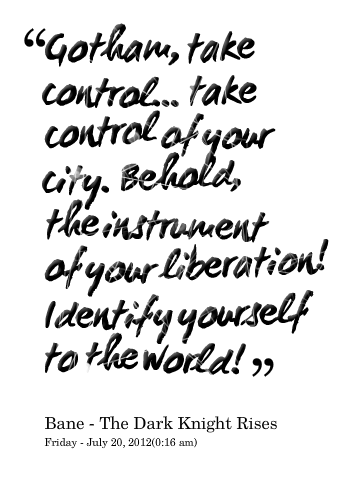 “Gotham, take
control... take
control of your
city. Behold,
the instrument
of your liberation!
Identify yourself
to the world!”
Bane - The Dark Knight Rises
Friday - July 20, 2012(0:16 am)